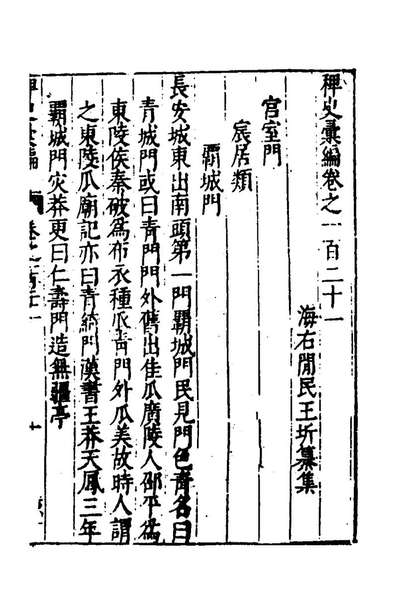 稗史彙編卷之一百二十一
海右閒民王圻纂集
宫室門
宸居類
霸城門
長安城東出南頭第一門霸城門民見門色青名曰
青城門或曰青門門外舊出佳瓜廣陵人邵平為
東陵侯秦破為布衣種瓜青門外瓜美故時人謂
之東陵瓜廟記亦曰青綺門漢書王莽天鳳三年
霸城門灾莽更曰仁壽門造無疆亭
稗史彙編